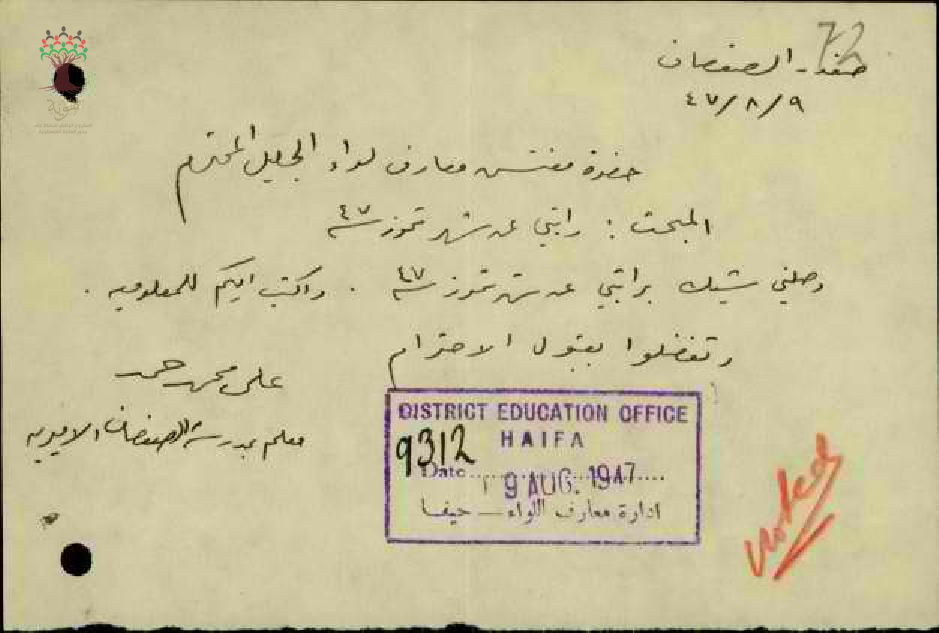 72
صفد - الصفصاف
٤٧/٨/٩
حضرة مفتش معارف لواء الجليل المحترم
المبحث : راتبي عن شهر تموز سنة ٤٧
وصلني شيك براتبي عن شهر تموز سنة ٤٧ . واكتب اليكم للمعلومية .
وتفضلوا بقبول الاحترام
علي محمد حمد
معلم بمدرسة الصفصاف الاميرية
DISTRICT EDUCATION OFFICE
HAIFA
9312
Date
19 AUG. 1947
ادارة معارف اللواء — حيفا
Noted